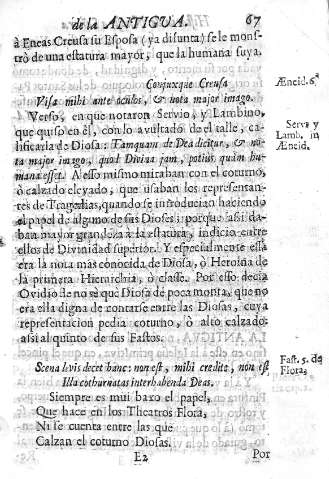 de la ANTIGUA. 67
à Eneas Creusa su Esposa (ya difunta) se le mons-
trò de una estatura mayor, que la humana suya.
Conjuxque Creusa
Æneid. 6.
Visa mihi ante oculos, & nota major imago.
Verso, en que notaron Servio, y Lambino,
que quiso en èl, con lo avultado de el talle, ca-
lificarla de Diosa: Tamquam de Dea dicitur, & no-
ta major imago, quasi Divina jam, potius quàm hu-
mana esset. A esso mismo miraban con el coturno,
Servi y
Lamb. in
Æneid.
ò calzado elevado, que usaban los representan-
tes de Tragedias, quando se introducian haciendo
el papel de alguno de sus Dioses: porque assi da-
ban mayor grandeza à la estatura, indicio entre
ellos de Divinidad superior. Y especialmente essa
era la nota mas conocida de Diosa, ò Heroina de
la primera Hierarchia, ò classe. Por esso decia
Ovidio de no sè què Diosa de poca monta, que no
era ella digna de contarse entre las Diosas, cuya
representacion pedia coturno, ò alto calzado
assi al quinto de sus Fastos.
Scena levis decet hanc: non est, mihi credite, non est
Illa cothurnatas inter habenda Deas.
Fast. 5. de
Flora,
Siempre es mui baxo el papel,
Que hace en los Theatros Flora,
Ni se cuenta entre las que
Calzan el coturno Diosas.
E2 Por